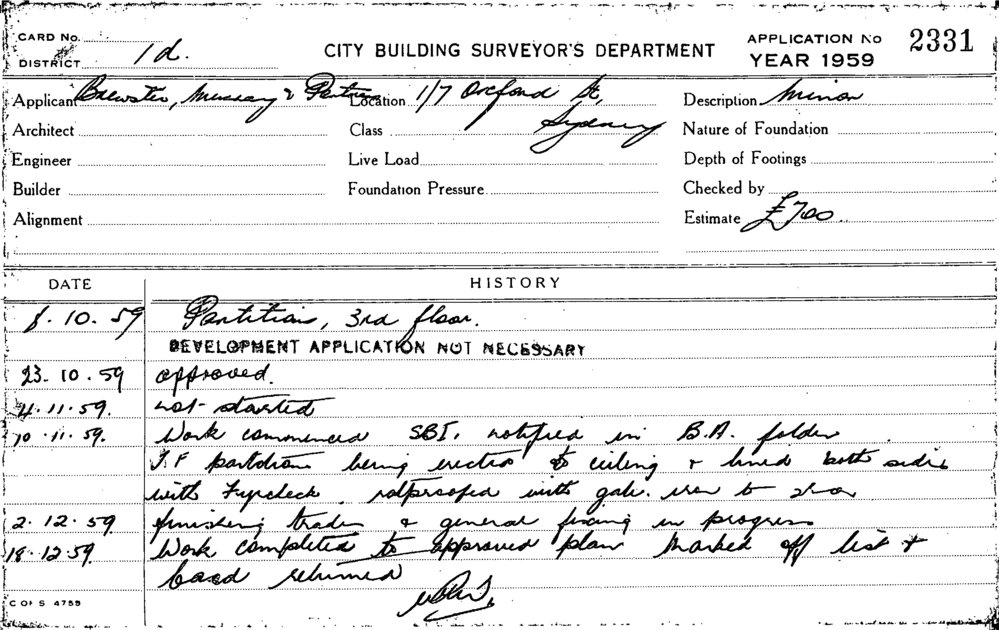 CARD No.
DISTRICT 1d.
CITY BUILDING SURVEYOR'S DEPARTMENT
APPLICATION No 2331
YEAR 1959
Applicant Brewster, Murray & Partners Location 1/7 Oxford St, Description Minor
Sydney
Architect Class Nature of Foundation
Engineer Live Load Depth of Footings
Builder Foundation Pressure Checked by
Alignment Estimate £700
DATE HISTORY
8.10.59 Partitions, 3rd floor.
DEVELOPMENT APPLICATION NOT NECESSARY
23.10.59 approved.
4.11.59. not started
10.11.59. Work commenced SBI. notified in B.A. folder
T.F partitions being erected to ceiling & lined both sides
with Fyrcheck. ratproofed with galv. iron to
2.12.59 finishing trades & general fixing in progress
18.12.59. Work completed to approved plan marked off list &
card returned
C OF S 4759